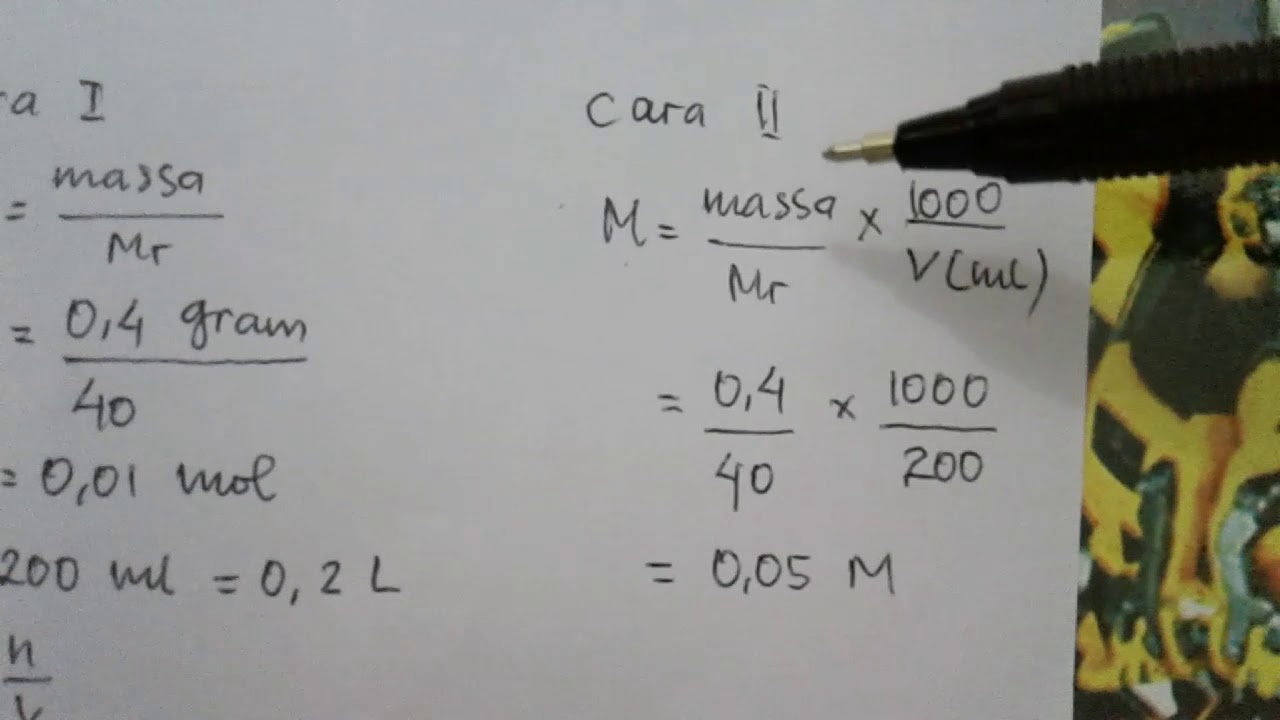 ra I
= massa
Mr
= 0,4 gram
40
= 0,01 mol
200 ml = 0,2 L
n
V
Cara II
M = massa × 1000
Mr V(ml)
= 0,4 × 1000
40 200
= 0,05 M